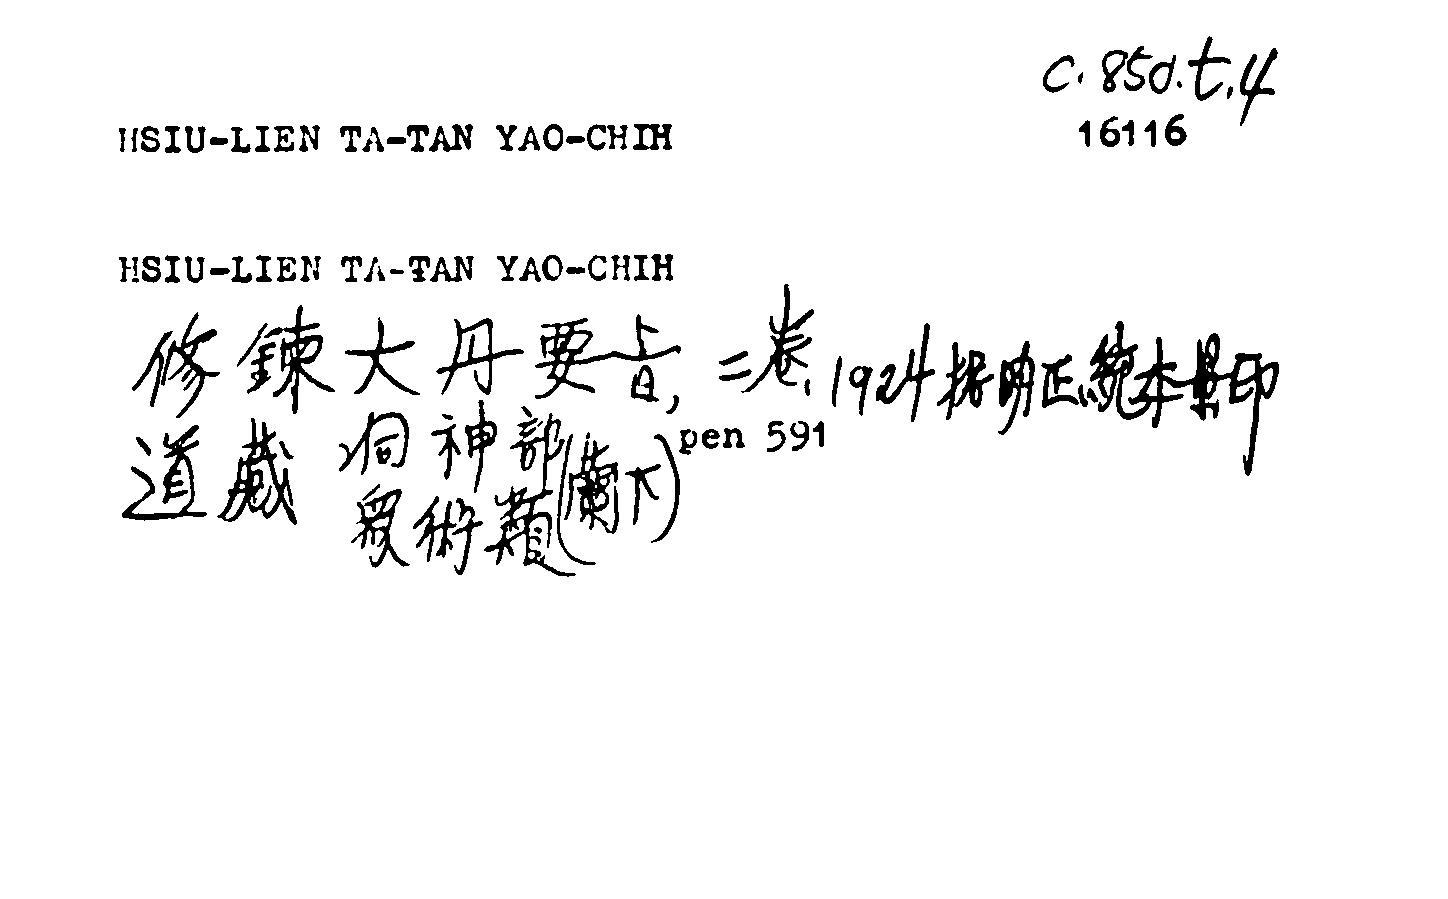 C. 85d.t.4
HSIU-LIEN TA-TAN YAO-CHIH
16116
HSIU-LIEN TA-TAN YAO-CHIH
修鍊大丹要旨, 二卷, 1924 据明正統本景印
道藏 洞神部 pen 591
衆術類 (蘭下)